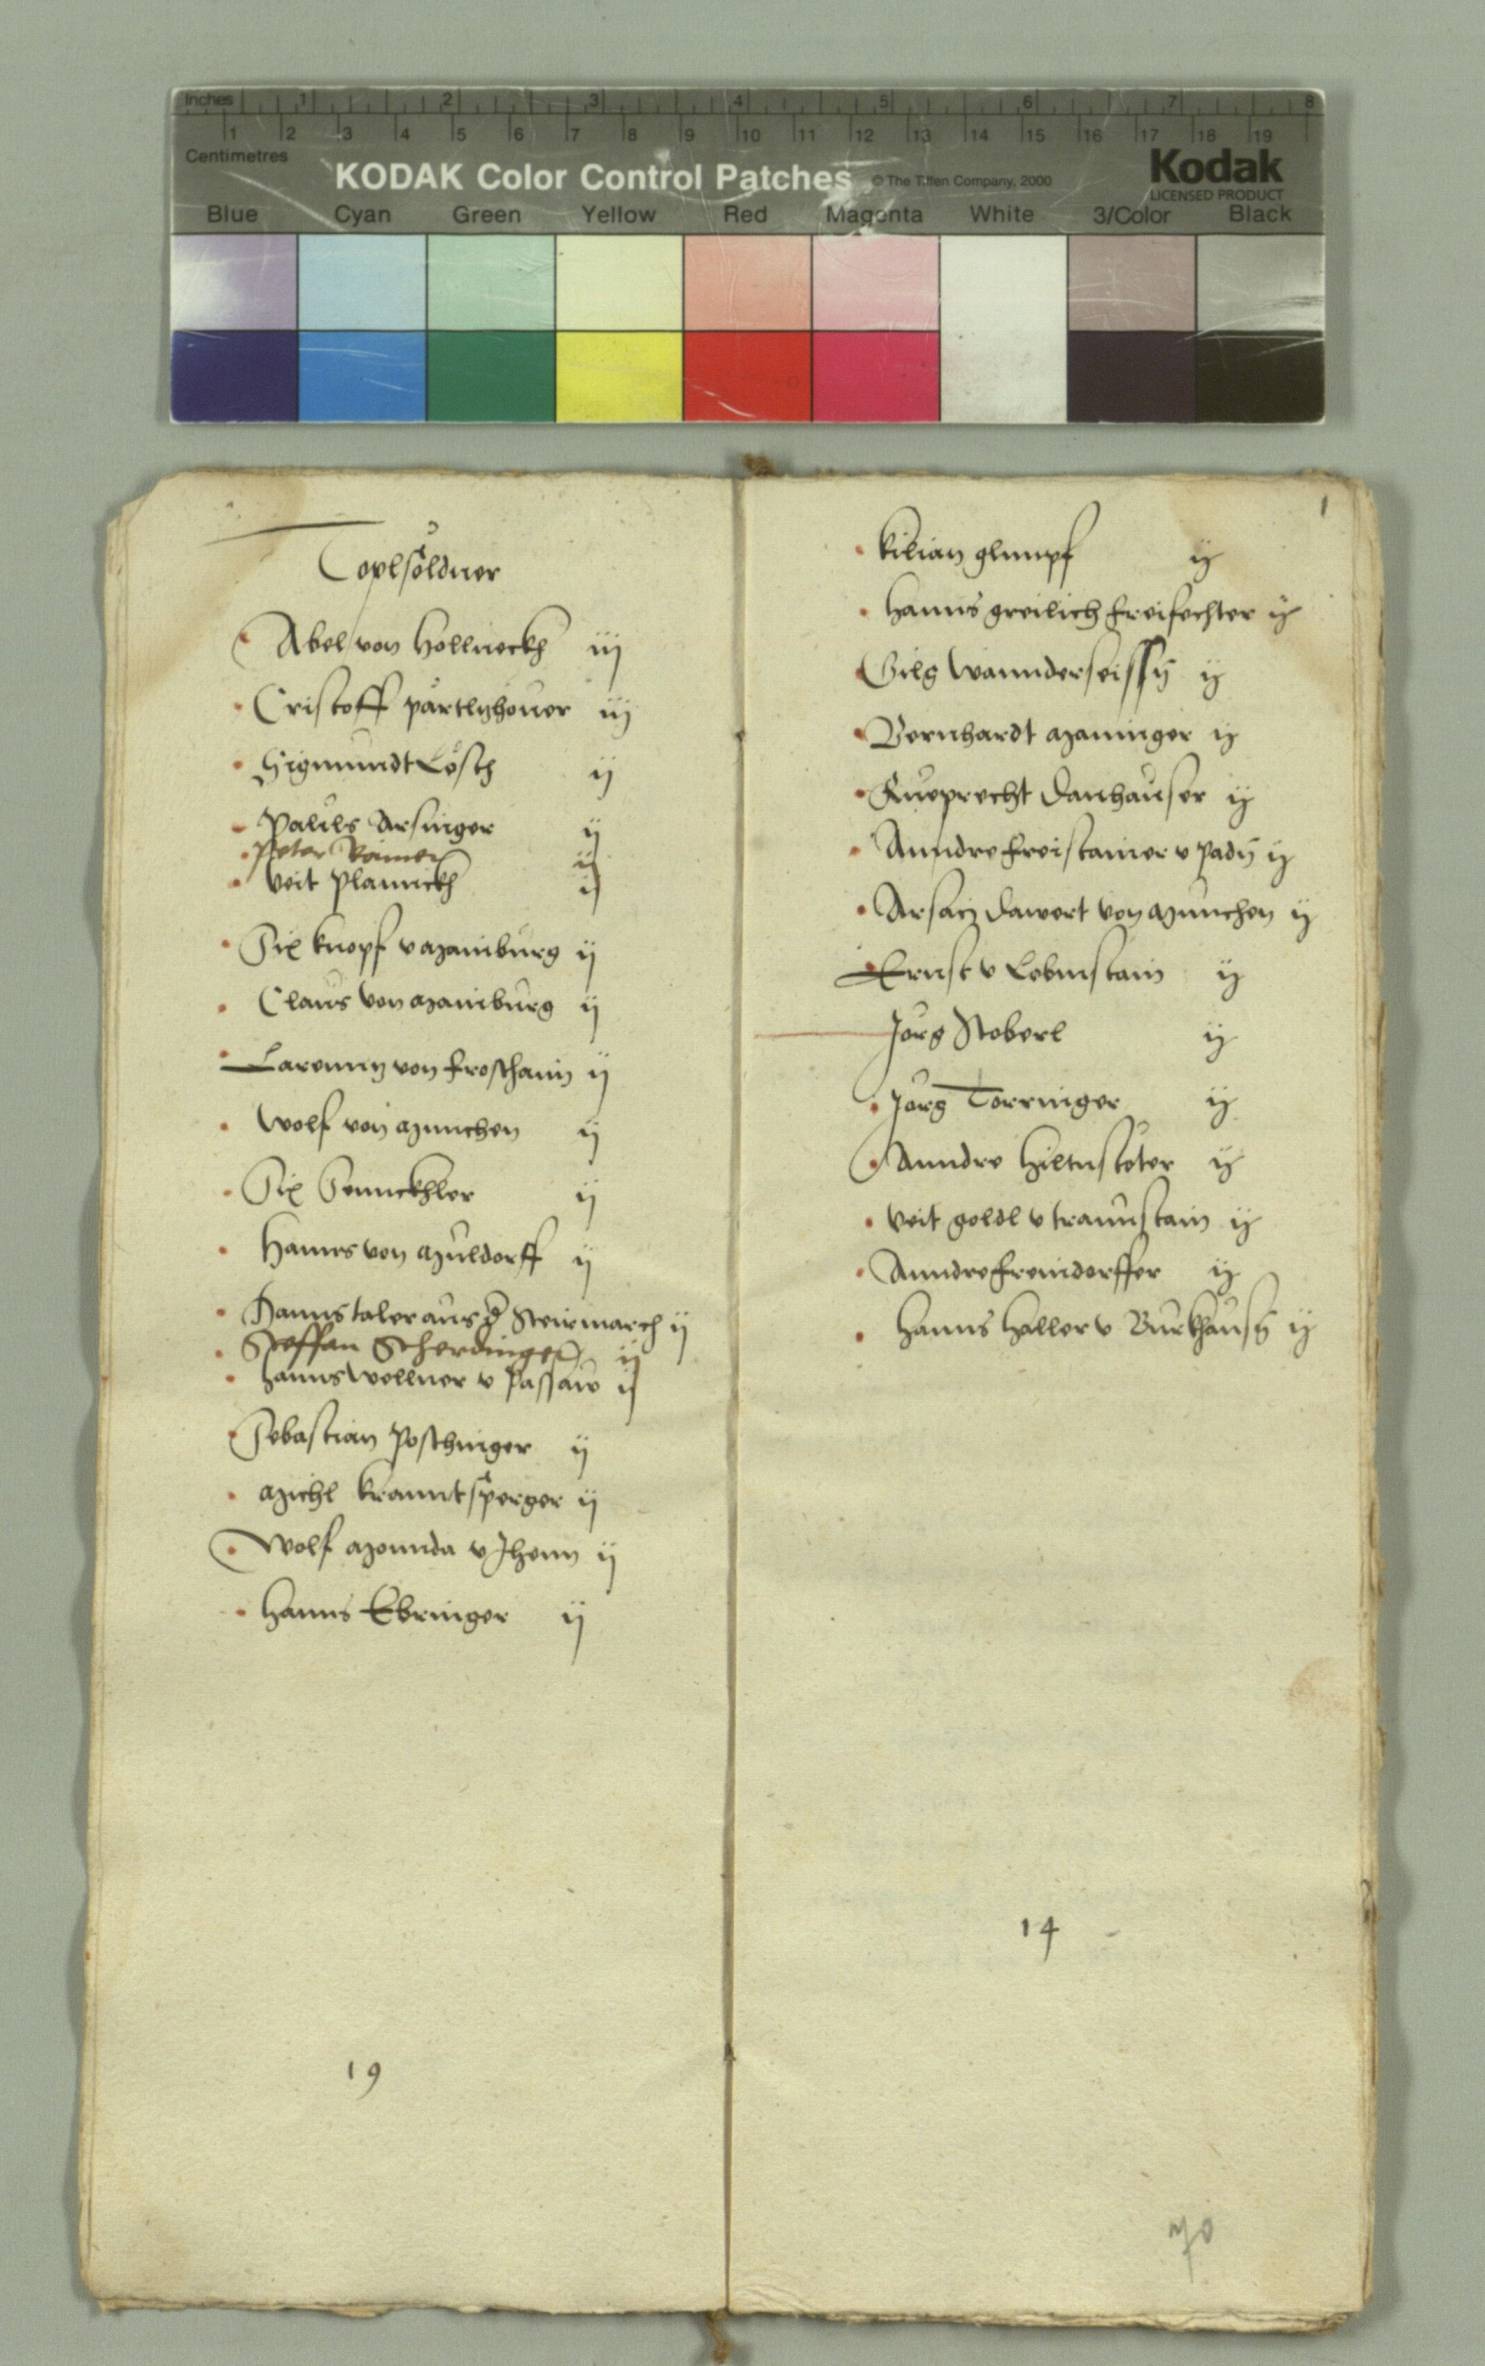 Inches 1 2 3 4 5 6 7 8
1 2 3 4 5 6 7 8 9 10 11 12 13 14 15 16 17 18 19
Centimetres
KODAK Color Control Patches © The Tiffen Company, 2000
Kodak
LICENSED PRODUCT
Blue Cyan Green Yellow Red Magenta White 3/Color Black
Toplsöldner
Abel von Hollneckh iij
Cristoff partlyhover iij
Sigmundt Lösch ij
Pauls Arsinger ij
Peter Rainer ij
Veit Planickh ij
Six knopf v Mainburg ij
Claus von Mainburg ij
von froschaim ij
Wolf von Munchen ij
Six Sennckhler ij
Hanns von Muldorff ij
Hanns taler aus d Steirmarch ij
Steffan Scherdinger ij
hanns wellner v Passaw ij
Sebastian Poschinger ij
Michl krauntsperger ij
Wolf v Jhenn ij
Hanns Ebringer ij
19
1
kilian glumpf ij
hanns greilich freifechter ij
Gilg ij
Bernhardt Maninger ij
Rueprecht Danhauser ij
Anndre freistainer v Padn ij
Arsaci Dawert von Munchen ij
Ernst v Lobmstain ij
Jorg Stoberl ij
Jorg Torringer ij
Anndre hiltnsteter ij
Veit goldl v traunstain ij
Anndre freindorffer ij
hanns haller v Burkhausn ij
14
70